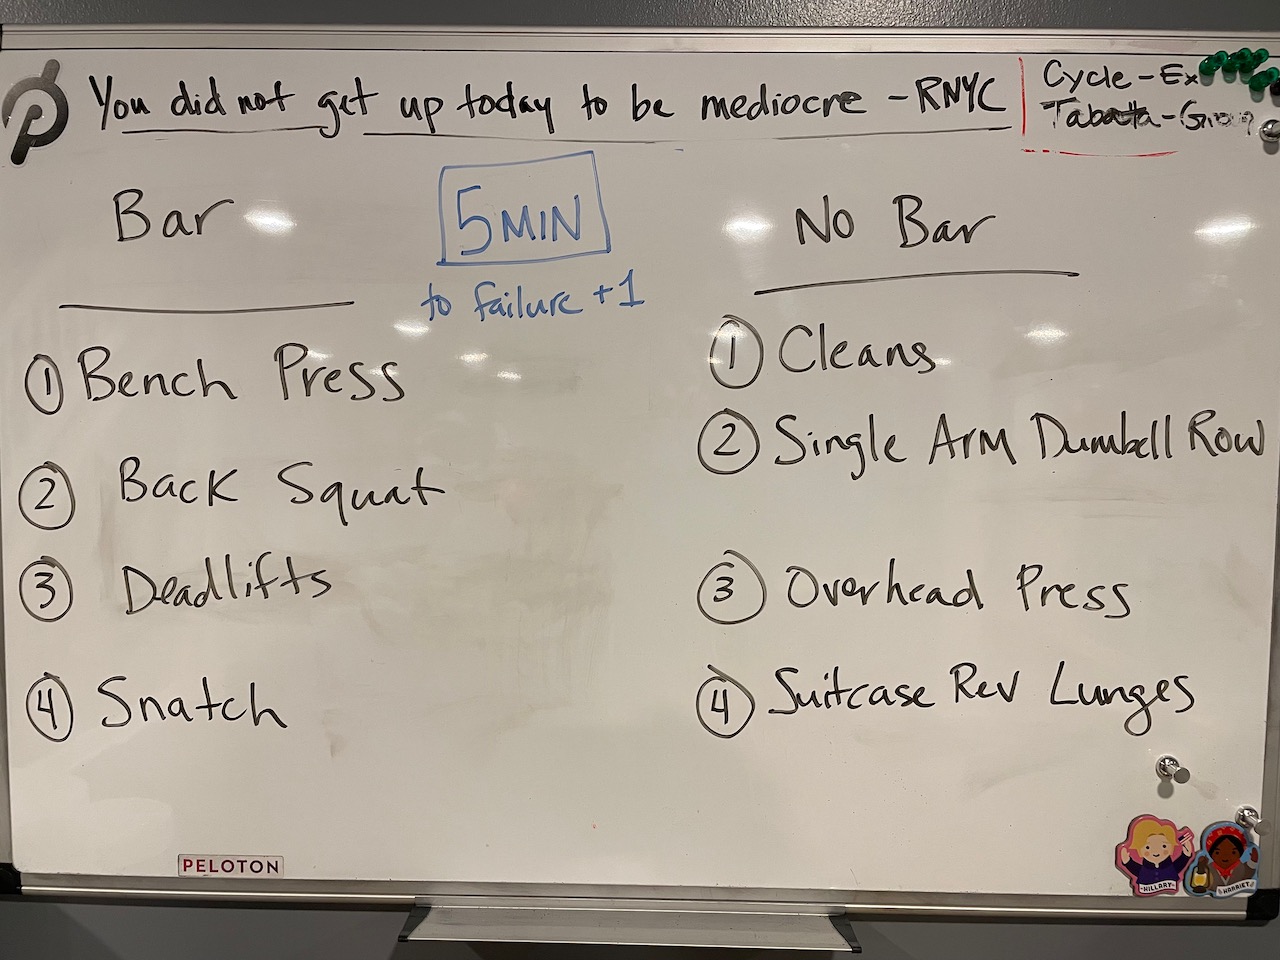 You did not get up today to be mediocre - RNYC
Cycle - Ex
Tabatta -
Bar
5 MIN
to failure +1
No Bar
1 Bench Press
2 Back Squat
3 Deadlifts
4 Snatch
1 Cleans
2 Single Arm Dumbell Row
3 Overhead Press
4 Suitcase Rev Lunges
PELOTON
HILLARY
HARRIET